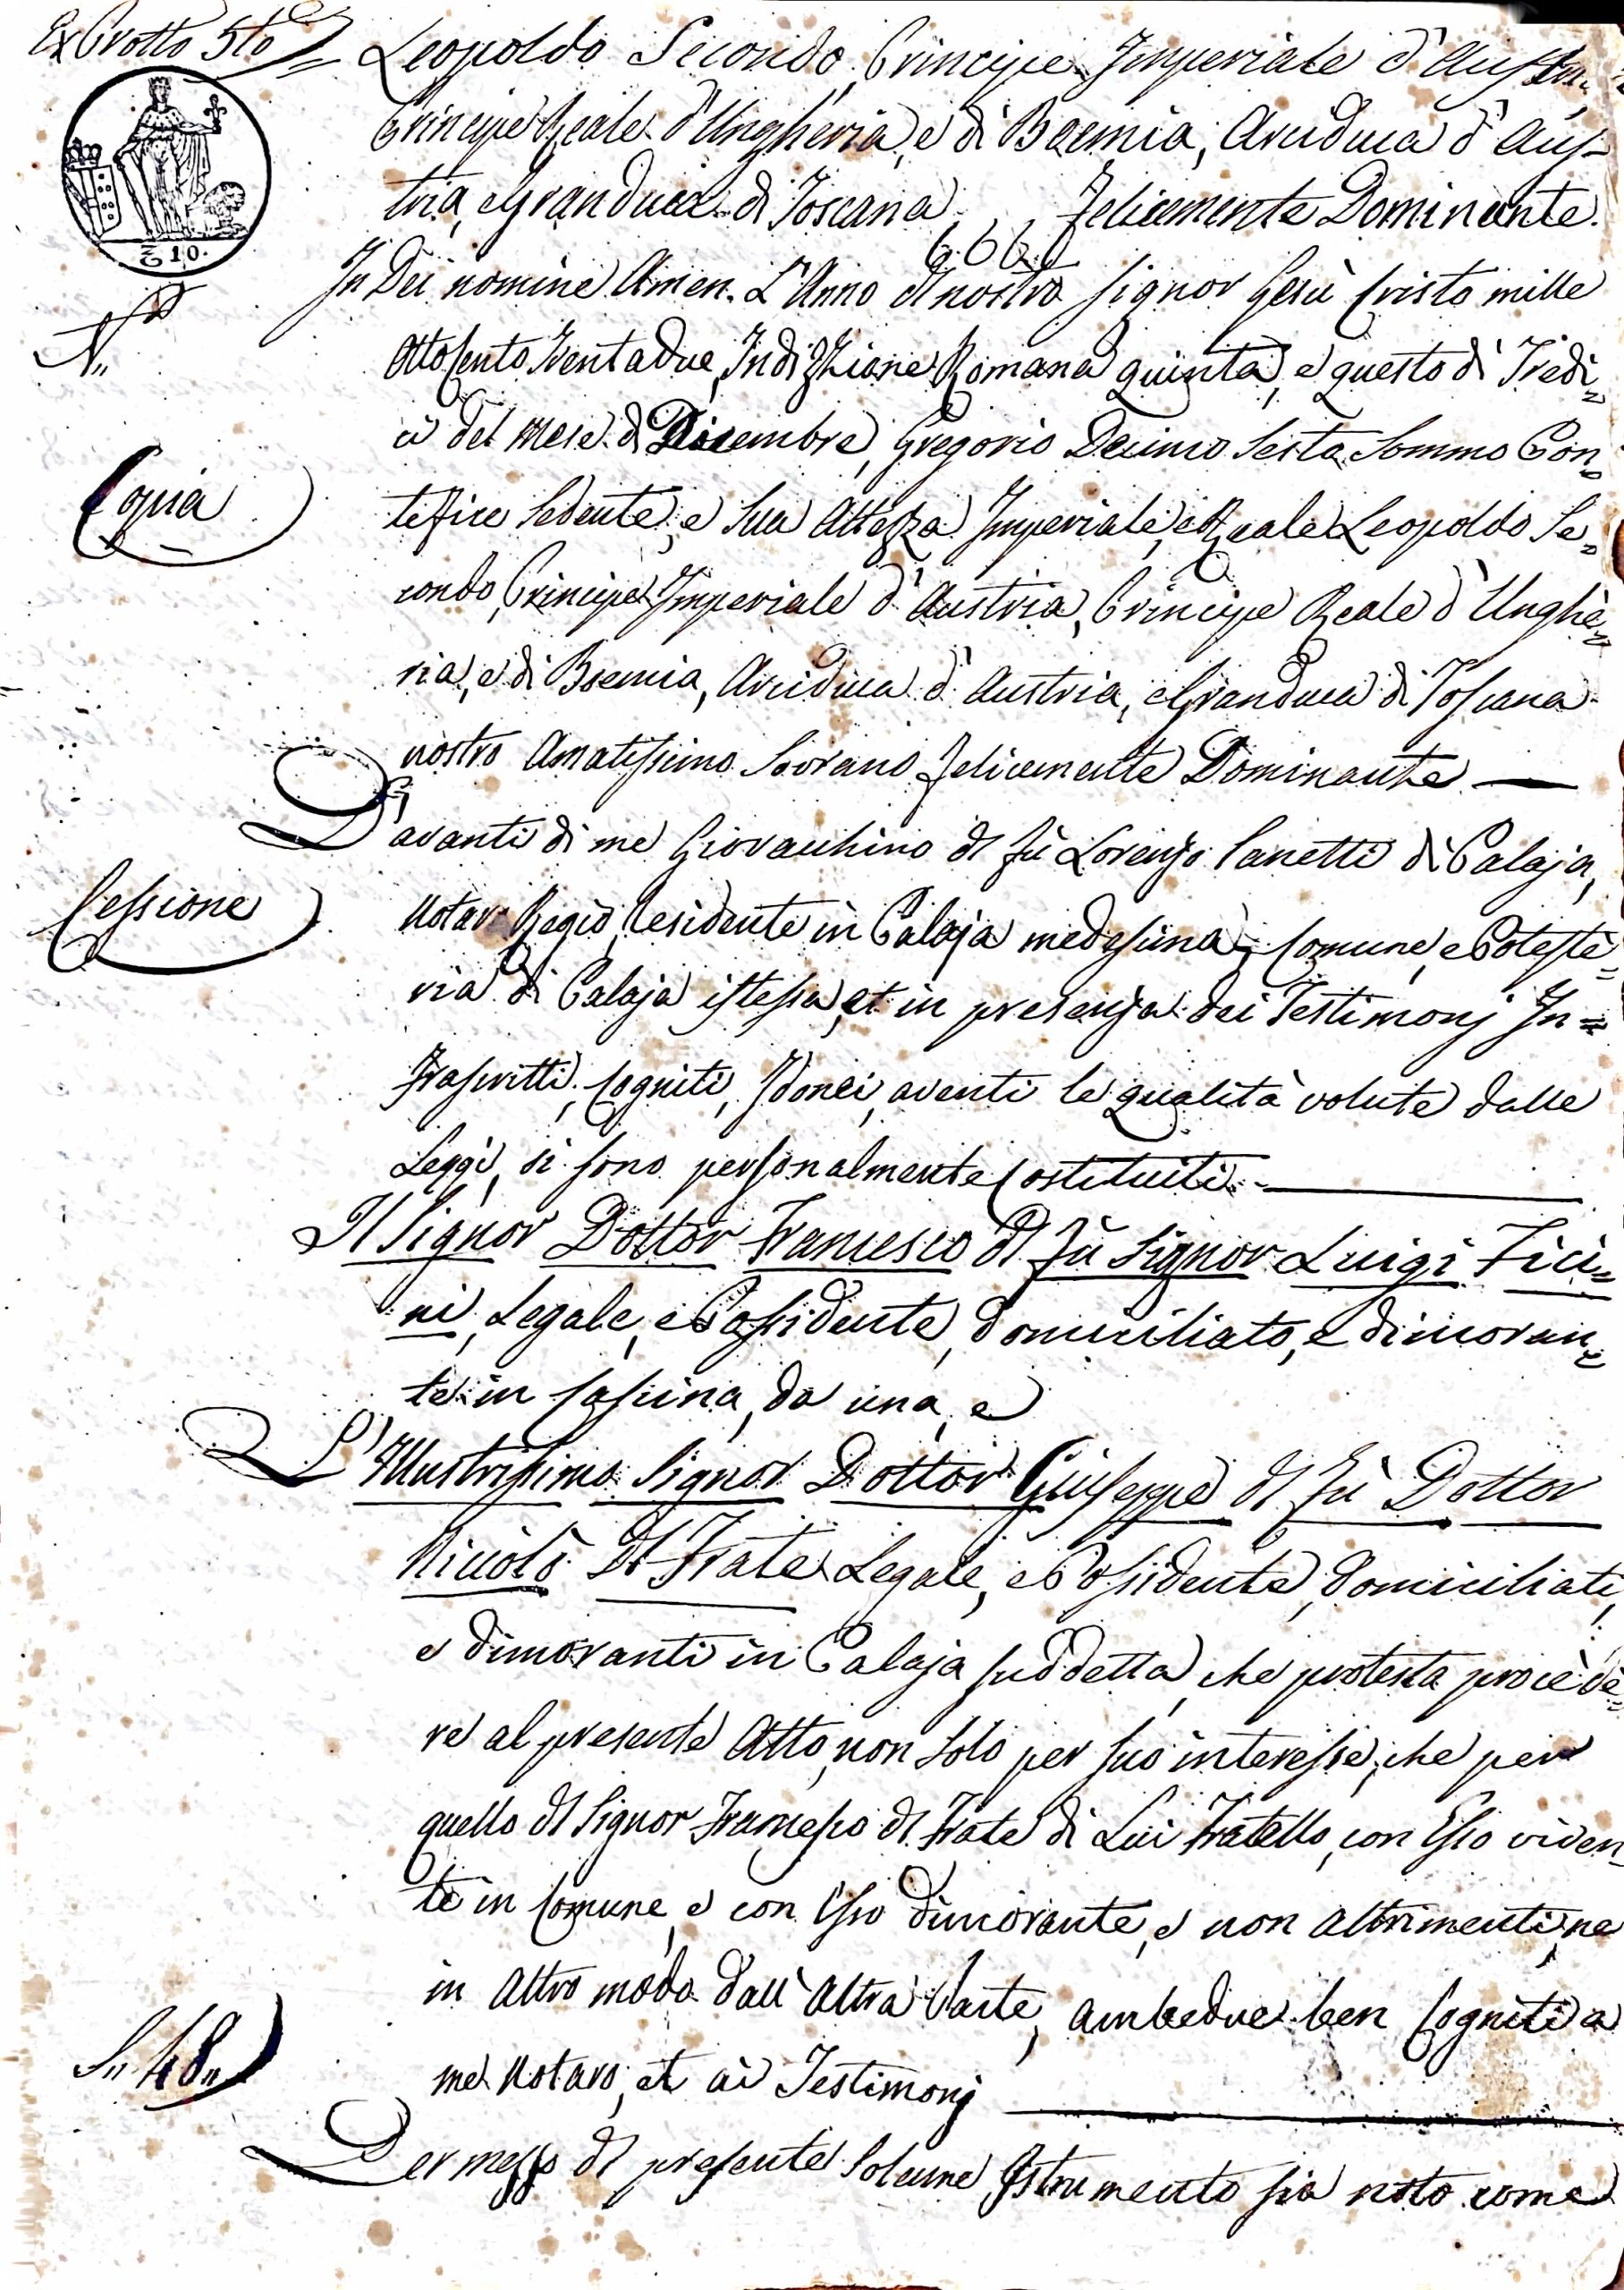 Leopoldo Secondo Principe Imperiale d'Austria
Principe Reale d'Ungheria, e di Boemia, Arciduca d'Aus=
tria, e Granduca di Toscana Felicemente Dominante.
₰ 10.
In Dei nomine Amen. L'Anno del nostro Signor Gesù Cristo mille
Ottocento trentadue, Indizzione Romana quinta, e questo dì Tredi=
ci del mese di Dicembre, Gregorio Decimo Sesto Sommo Pon=
Copia
tefice Sedente, e Sua Altezza Imperiale, e Reale Leopoldo Se=
condo, Principe Imperiale d'Austria, Principe Reale d'Unghe=
ria, e di Boemia, Arciduca d'Austria, e Granduca di Toscana
nostro Amatissimo Sovrano felicemente Dominante
Davanti di me Giovacchino del fù Lorenzo Panetti di Palaja,
Cessione
Notaro Regio, Residente in Palaja medesima, Comune, e Poteste=
ria di Palaja istessa, et in presenza dei Testimonj In=
frascritti, Cogniti, Idonei, aventi le qualità volute dalle
Leggi, si sono personalmente Costituiti
Il Signor Dottor Francesco del fù Signor Luigi Fici=
ni, Legale, e Possidente, domiciliato, e dimoran=
te in Cascina, da una, e
L'Illustrissimo Signor Dottor Giuseppe del fù Dottor
Niccolò Del Frate Legale, e Possidente, domiciliati,
e dimoranti in Palaja suddetta, che protesta procede=
re al presente Atto, non solo per suo interesse, che per
quello del Signor Francesco del Frate di Lui Fratello, con Esso viven=
te in Comune, e con Esso dimorante, e non altrimenti, ne
in altro modo dall'altra Parte, ambedue ben Cogniti a
me Notaro, et ai Testimonj
S. 48.
Per mezzo del presente Solenne Istrumento sia noto come